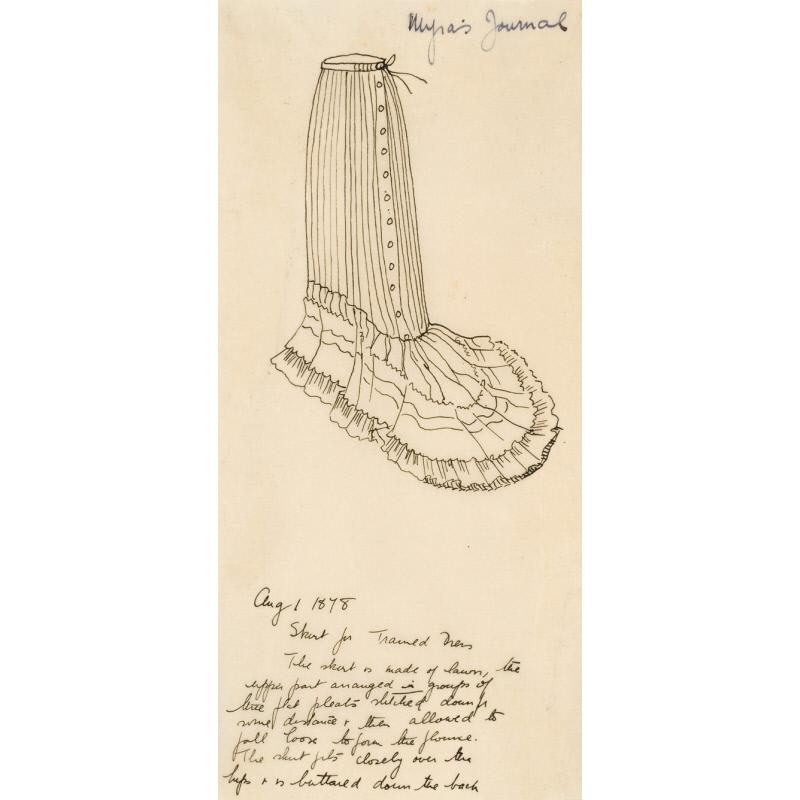 Myra's Journal
Aug 1 1878
Skirt for Trained Dress
The skirt is made of lawn, the
upper part arranged in groups of
three flat pleats stitched down for
some distance & then allowed to
fall loose to form the flounce.
The skirt fits closely over the
hips & is buttoned down the back